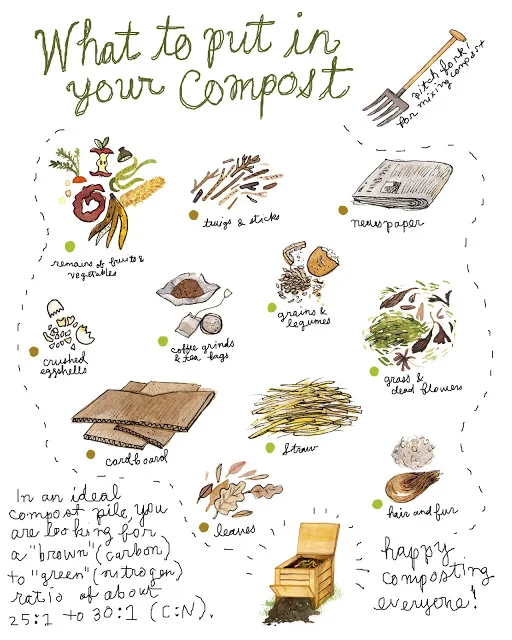 What to put in
your Compost
pitch fork!
for mixing compost
remains of fruits &
vegetables
twigs & sticks
newspaper
crushed
eggshells
coffee grinds
& tea bags
grains &
legumes
grass &
dead flowers
cardboard
straw
leaves
hair and fur
In an ideal
compost pile, you
are looking for
a "brown" (carbon)
to "green" (nitrogen)
ratio of about
25:1 to 30:1 (C:N).
happy
composting
everyone!